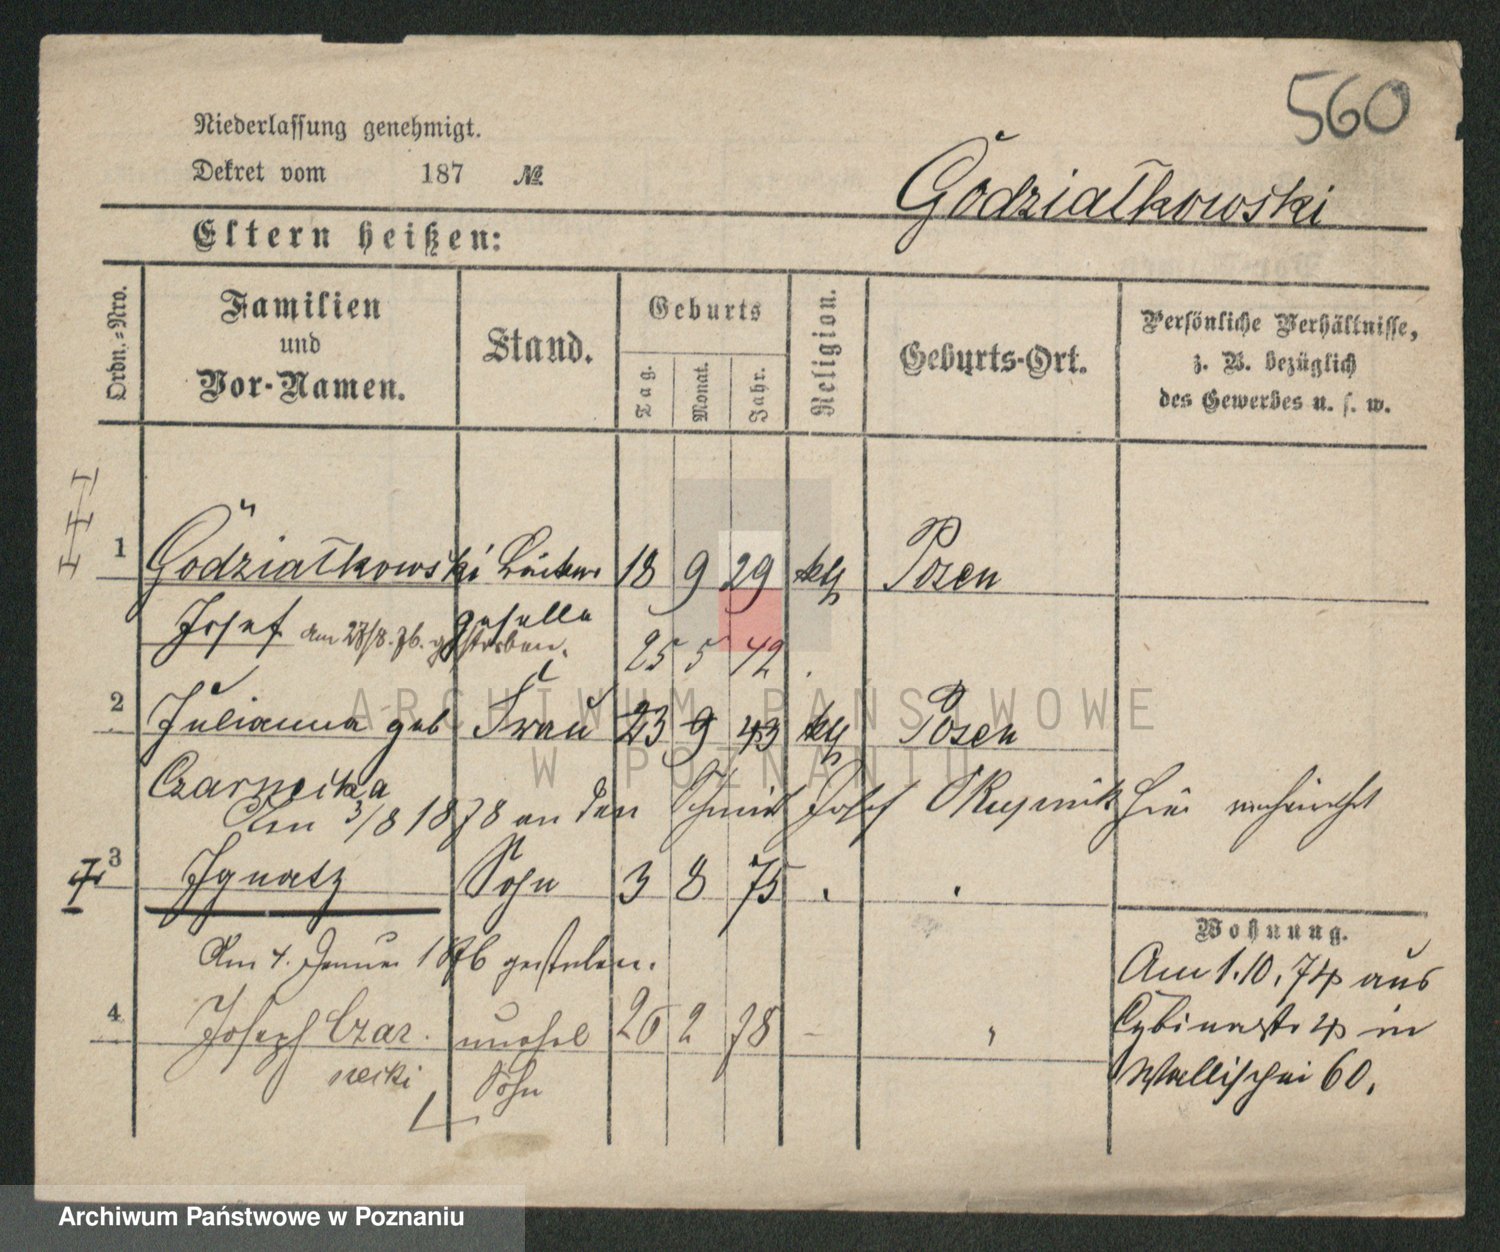 560
Niederlassung genehmigt.
Dekret vom 187 №
Godziałkowski
Eltern heißen:
Ordn.-Nro.
Familien und Vor-Namen.
Stand.
Geburts
Tag.
Monat.
Jahr.
Religion.
Geburts-Ort.
Persönliche Verhältnisse,
z. B. bezüglich
des Gewerbes u. s. w.
1 Godziałkowski 18 9 29 kth Posen
Josef am 23/8. 76. gestorben. geselle
25 5 42
2 Julianna geb Frau 23 9 43 kth Posen
Czarnecka
Am 3/8 1878 an den Schmied Josef hier verheirathet
3 Ignatz Sohn 3 8 75
Am 4. Januar 1876 gestorben.
4 Joseph Czar- unehel 26 2 78
necki Sohn
Wohnung.
Am 1.10.74 aus
Cybinastr 4 in
Wallischei 60.
ARCHIWUM PAŃSTWOWE
W POZNANIU
Archiwum Państwowe w Poznaniu